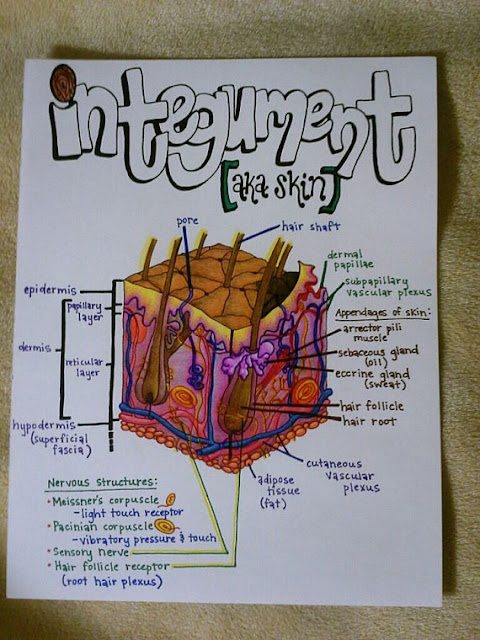 integument
[aka skin]
pore
hair shaft
dermal
papillae
subpapillary
vascular plexus
Appendages of skin:
arrector pili
muscle
sebaceous gland
(oil)
eccrine gland
(sweat)
hair follicle
hair root
cutaneous
vascular
plexus
adipose
tissue
(fat)
epidermis
papillary
layer
dermis
reticular
layer
hypodermis
(superficial
fascia)
Nervous structures:
• Meissner's corpuscle
- light touch receptor
• Pacinian corpuscle
- vibratory pressure & touch
• Sensory nerve
• Hair follicle receptor
(root hair plexus)